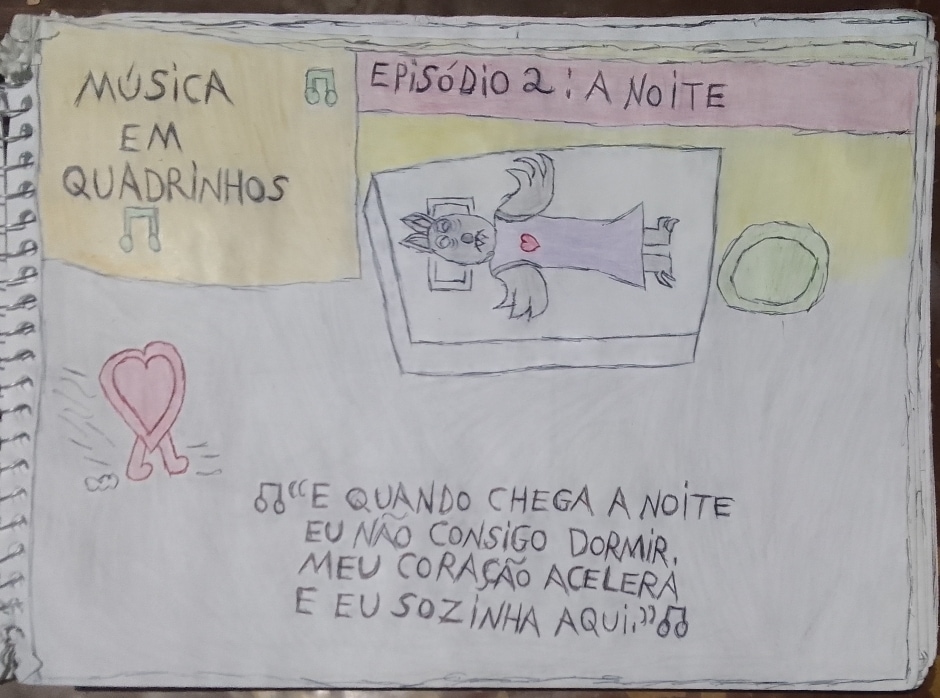 MÚSICA
EM
QUADRINHOS
EPISÓDIO 2: A NOITE
"E QUANDO CHEGA A NOITE
EU NÃO CONSIGO DORMIR.
MEU CORAÇÃO ACELERA
E EU SOZINHA AQUI."